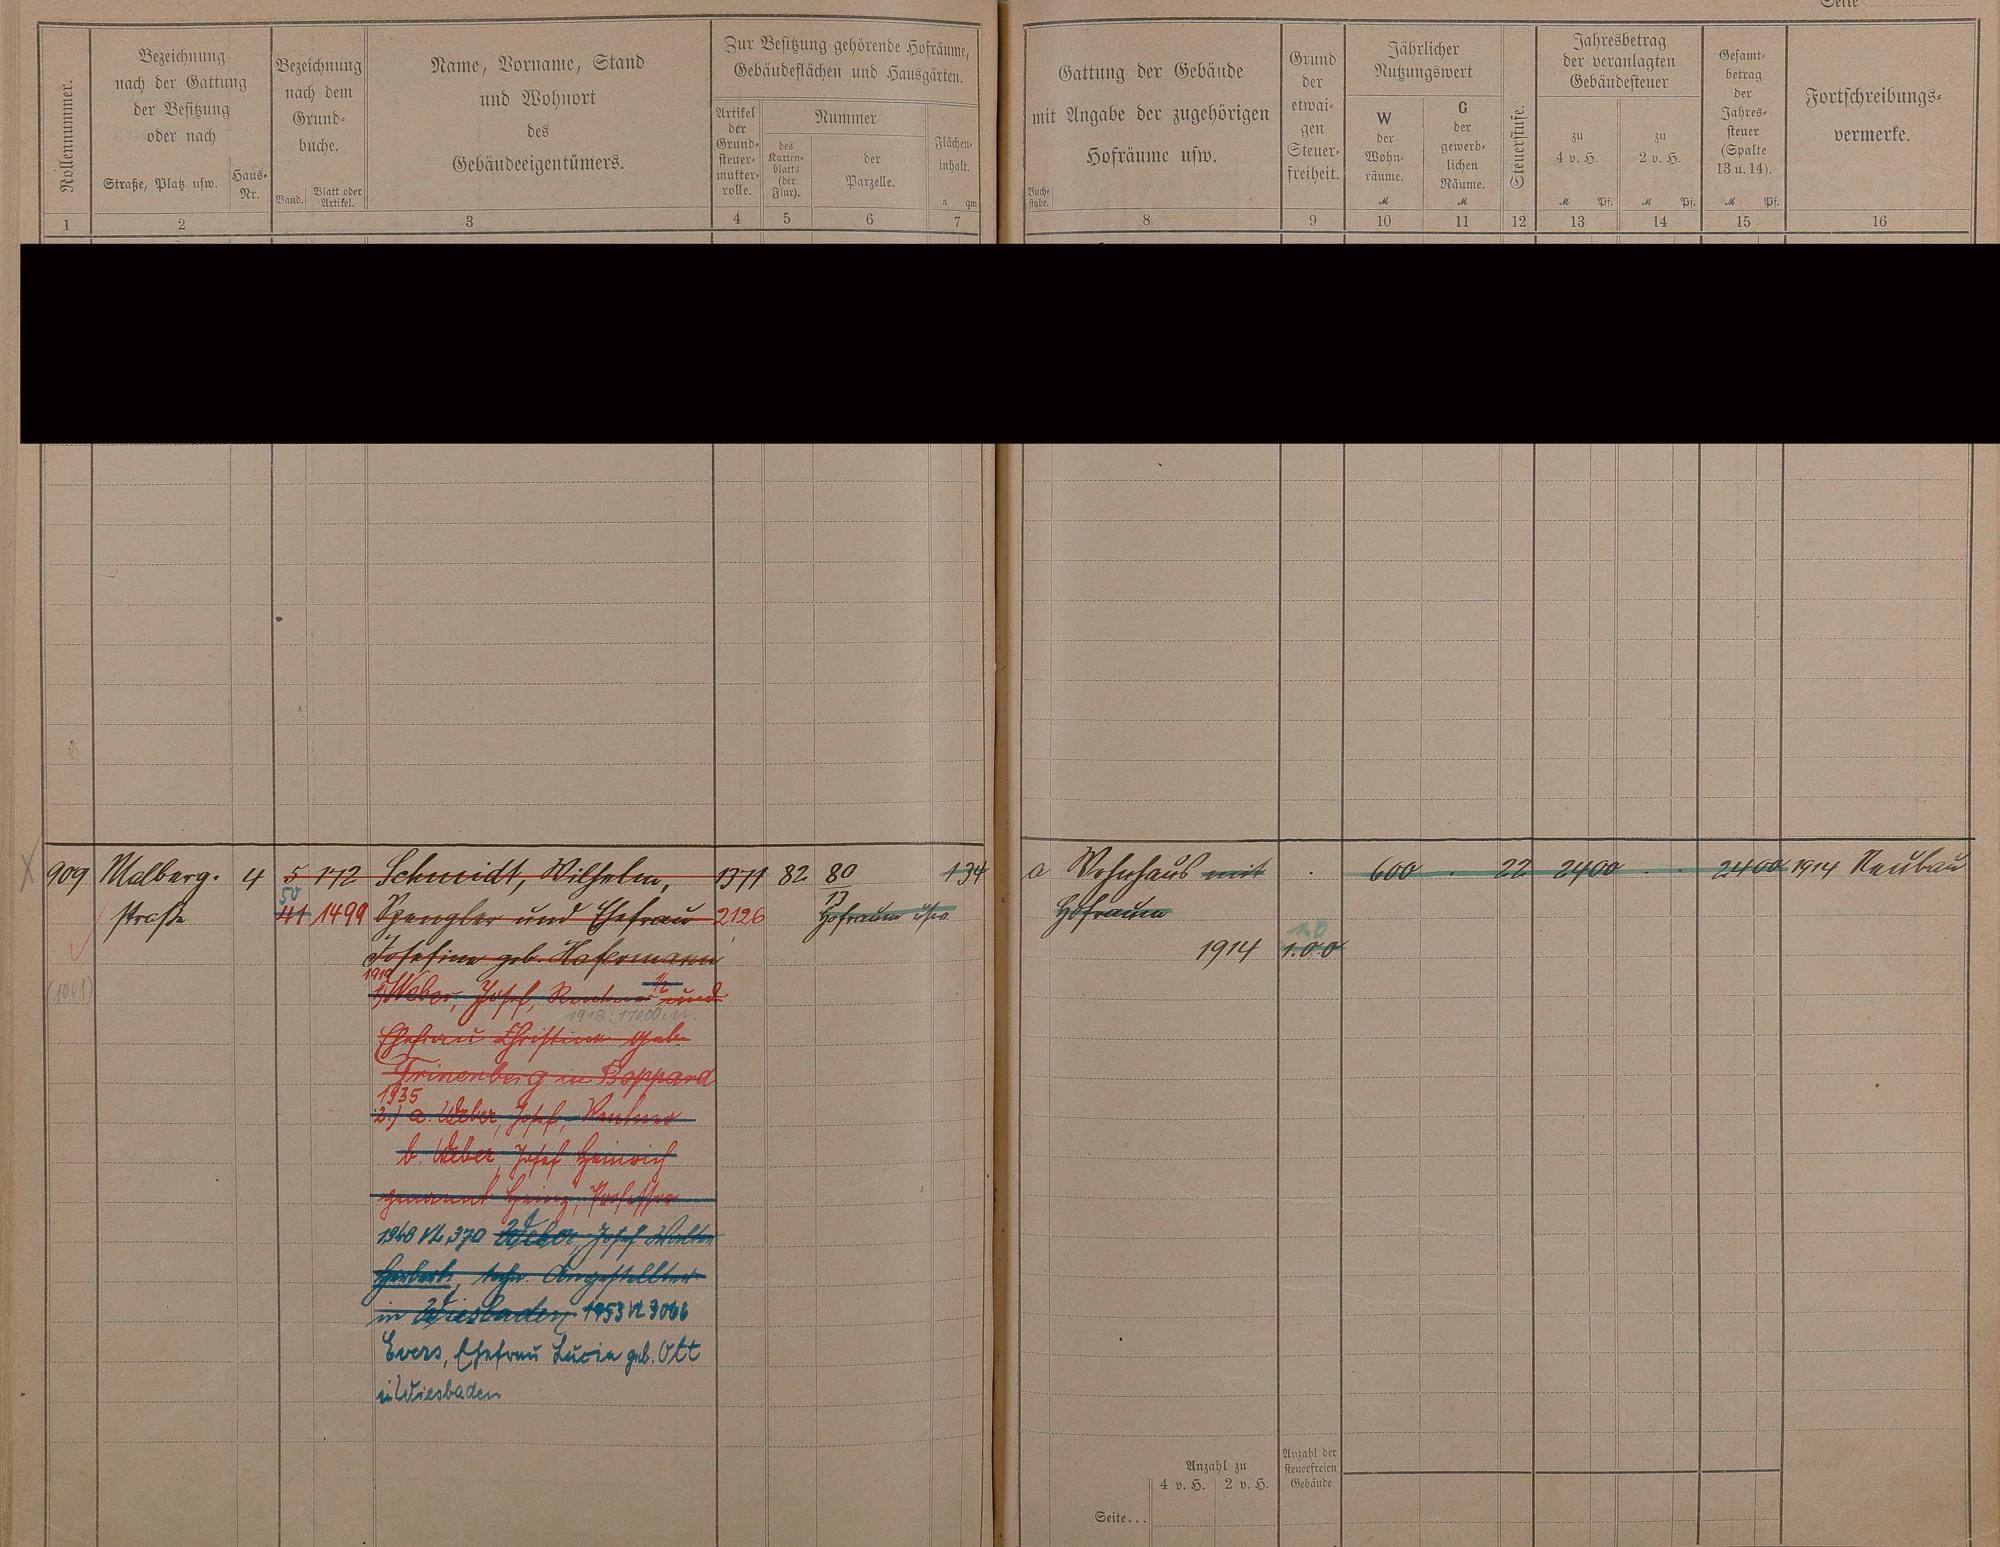 Seite
Rollennummer.
Bezeichnung
nach der Gattung
der Besitzung
oder nach
Straße, Platz usw.
Haus-
Nr.
Bezeichnung
nach dem
Grund-
buche.
Band.
Blatt oder
Artikel.
Name, Vorname, Stand
und Wohnort
des
Gebäudeeigentümers.
Zur Besitzung gehörende Hofräume,
Gebäudeflächen und Hausgärten.
Artikel
der
Grund-
steuer-
mutter-
rolle.
Nummer
des
Karten-
blatts
(der
Flur).
der
Parzelle.
Flächen-
inhalt.
a qm
Gattung der Gebäude
mit Angabe der zugehörigen
Hofräume usw.
Buch-
stabe.
Grund
der
etwai-
gen
Steuer-
freiheit.
Jährlicher
Nutzungswert
W
der
Wohn-
räume.
M
G
der
gewerb-
lichen
Räume.
M
Steuerstufe.
Jahresbetrag
der veranlagten
Gebäudesteuer
zu
4 v. H.
M Pf.
zu
2 v. H.
M Pf.
Gesamt-
betrag
der
Jahres-
steuer
(Spalte
13 u. 14).
M Pf.
Fortschreibungs-
vermerke.
1 2 3 4 5 6 7 8 9 10 11 12 13 14 15 16
909 Malberg- 4 5 172 Schmidt, Wilhelm, 1371 82 80 1 34 a Wohnhaus mit 600 22 24 00 24 00 1914 Neubau
50
13
straße 41 1499 Spengler und Ehefrau 2126 Hofraum usw. Hofraum
1.0
Josefine geb. 1914 1.0.0
1919
(1001) 1) Weber, Josef, Rentner 1/2 und
1918: 17000 M.
Ehefrau Christine geb.
in Boppard
1935
2.) a. Weber, Josef, Rentner
b. Weber, Josef Heinrich
genannt Heinz, Professor
1940 VL 370 Weber, Josef Walter
Herbert, techn. Angestellter
in Wiesbaden 1953 VL 3066
Evers, Ehefrau Lucia geb. Ott
in Wiesbaden
Anzahl zu
4 v. H. 2 v. H.
Anzahl der
steuerfreien
Gebäude
Seite...